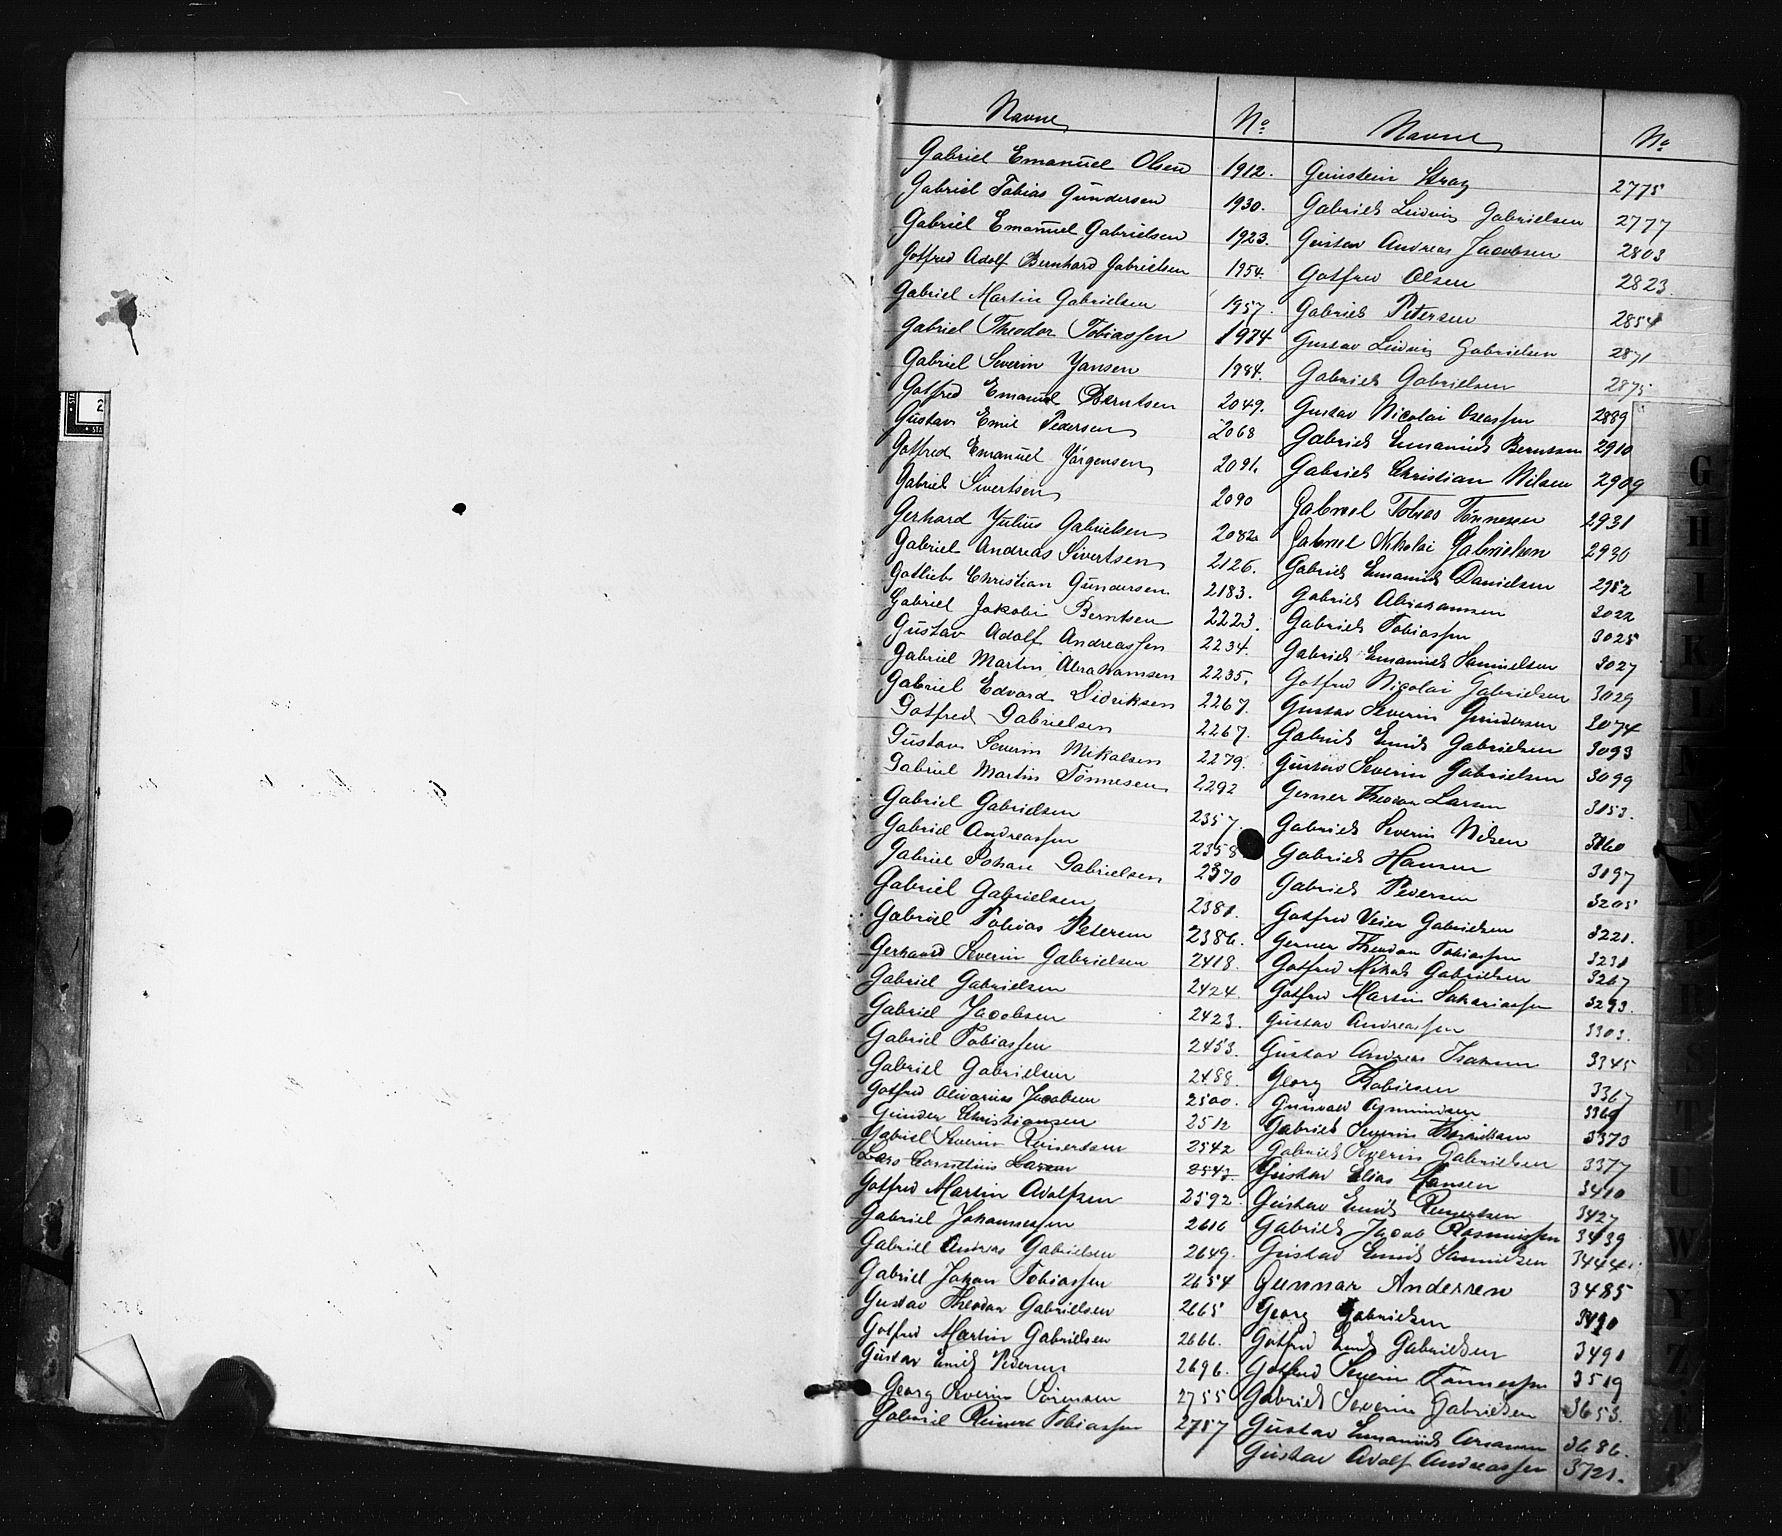 Navne No
Gabriel Emanuel Olsen 1912.
Gabriel Tobias Gundersen 1930.
Gabriel Emanuel Gabrielsen 1923.
Gotfred Adolf Bernhard Gabrielsen 1954.
Gabriel Martin Gabrielsen 1957.
Gabriel Theodor Tobiassen 1974
Gabriel Severin Jansen 1984.
Gotfred Emanuel Berntsen 2049.
Gustav Emil Pedersen 2068
Gotfred Emanuel Jörgensen 2091.
Gabriel Sivertsen 2090
Gerhard Julius Gabrielsen 2082
Gabriel Andreas Sivertsen 2126.
Gotlieb Christian Gundersen 2183.
Gabriel Jakobi Berntsen 2223.
Gustav Adolf Andreassen 2234.
Gabriel Martin Abrahamsen 2235.
Gabriel Edvard Didriksen 2267.
Gotfred Gabrielsen 2267.
Gustav Severin Mikalsen 2279.
Gabriel Martin Tönnesen 2292
Gabriel Gabrielsen 2357.
Gabriel Andreassen 2358
Gabriel Johan Gabrielsen 2370
Gabriel Gabrielsen 2381.
Gabriel Tobias Petersen 2386.
Gerhard Severin Gabrielsen 2418.
Gabriel Gabrielsen 2424.
Gabriel Jacobsen 2423.
Gabriel Tobiassen 2453.
Gabriel Gabrielsen 2488.
Gotfred Olivarius Jacobsen 2500.
Gunder Christiansen 2512
Gabriel Severin Reinertsen 2542
Lars Cornelius Larsen 2543
Gotfred Martin Adolfsen 2592.
Gabriel Johannessen 2616
Gabriel Andreas Gabrielsen 2649.
Gabriel Johan Tobiassen 2654
Gustav Theodor Gabrielsen 2665
Gotfred Martin Gabrielsen 2666.
Gustav Emil Pedersen 2696.
Georg Severin Sörensen 2755
Gabriel Reinert Tobiassen 2757
Navne No
Geinstein Stray 2775
Gabriel Ludvig Gabrielsen 2777
Gustav Andreas Jacobsen 2803
Gotfred Olsen 2823
Gabriel Petersen 2854
Gustav Ludvig Gabrielsen 2871
Gabriel Gabrielsen 2875
Gustav Nicolai Oseassen 2889
Gabriel Emanuel Berntsen 2910
Gabriel Christian Nilsen 2909
Gabriel Tobias Tönnessen 2931
Gabriel Nikolai Gabrielsen 2930
Gabriel Emanuel Danielsen 2952
Gabriel Abrahamsen 3022
Gabriel Tobiassen 3025
Gabriel Emanuel Samuelsen 3027
Gotfred Nicolai Gabrielsen 3029
Gustav Severin Gundersen 3074
Gabriel Emil Gabrielsen 3093
Gustav Severin Gabrielsen 3099
Gerner Theodor Larsen 3153.
Gabriel Severin Nilsen 3160
Gabriel Hansen 3197
Gabriel Pedersen 3205
Gotfred Veier Gabrielsen 3221.
Gerner Theodor Tobiassen 3231
Gotfred Mikal Gabrielsen 3267
Gotfred Martin Sakariassen 3293.
Gustav Andreassen 3303.
Gustav Andreas Isaksen 3345
Georg Tobiesen 3367
Gunvald Asmundsen 3369
Gabriel Severin 3373
Gabriel Severin Gabrielsen 3377
Gustav Elias Jansen 3410
Gustav Emil Reinertsen 3427
Gabriel Jacob Rasmussen 3439
Gustav Emil Samuelsen 3444
Gunnar Andersen 3485
Georg Gabrielsen 3490
Gotfred Emil Gabrielsen 3491
Gotfred Severin Tönnessen 3519
Gabriel Severin Gabrielsen 3653.
Gustav Emanuel 3686.
Gustav Adolf Andreassen 3721.
G
H
I
K
L
M
N
P
R
S
T
U
W
Y
Z
2